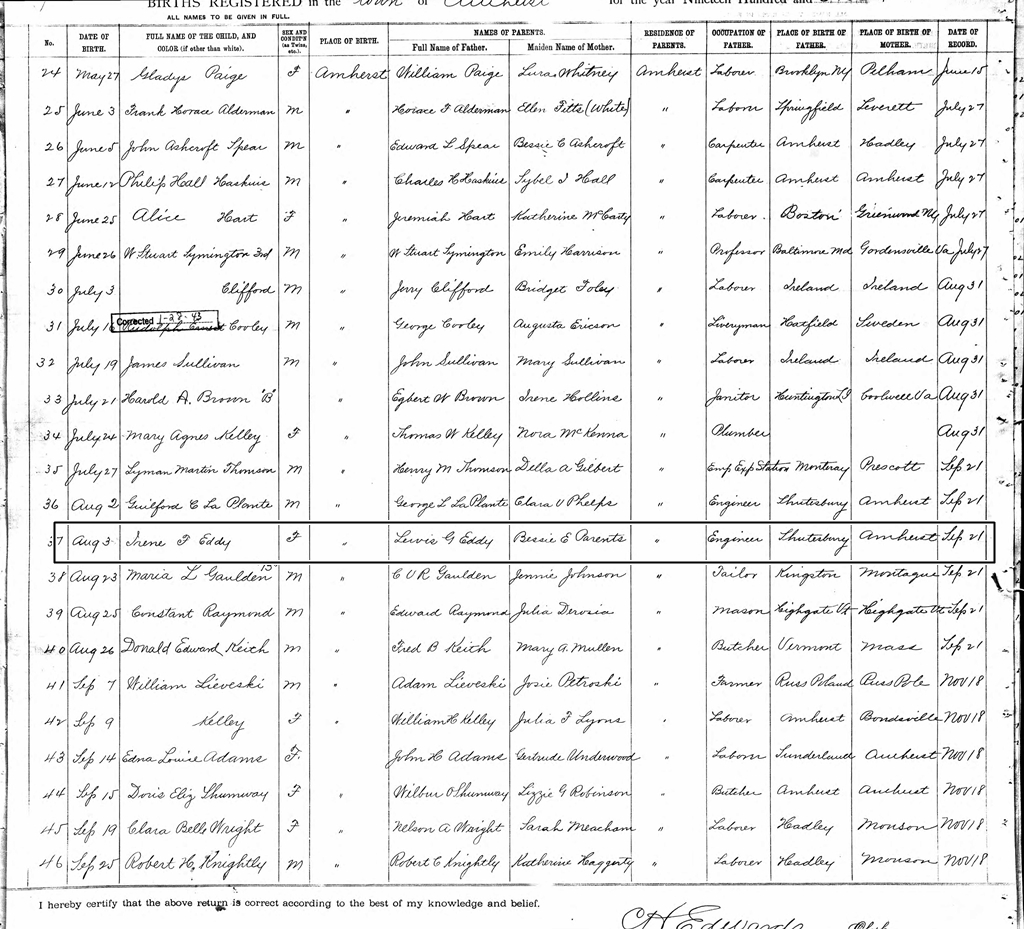 BIRTHS REGISTERED in the Town of Amherst for the year Nineteen Hundred and
ALL NAMES TO BE GIVEN IN FULL.
No. DATE OF BIRTH. FULL NAME OF THE CHILD, AND COLOR (if other than white). SEX AND CONDIT'N (as Twins, etc.) PLACE OF BIRTH. NAMES OF PARENTS. Full Name of Father. Maiden Name of Mother. RESIDENCE OF PARENTS. OCCUPATION OF FATHER. PLACE OF BIRTH OF FATHER. PLACE OF BIRTH OF MOTHER. DATE OF RECORD.
24 May 27 Gladys Paige F Amherst William Paige Lura Whitney Amherst Laborer Brooklyn Ny Pelham June 15
25 June 3 Frank Horace Alderman M " Horace F Alderman Ellen Fitts (White) " Laborer Springfield Leverett July 27
26 June 5 John Ashcroft Spear M " Edward L Spear Bessie C Ashcroft " Carpenter Amherst Hadley July 27
27 June 12 Philip Hall Haskins M " Charles H Haskins Sybel I Hall " Carpenter Amherst Amherst July 27
28 June 25 Alice Hart F " Jeremiah Hart Katherine McCarty " Laborer Boston Greenwood Ny July 27
29 June 26 W. Stuart Symington 3rd M " W Stuart Symington Emily Harrison " Professor Baltimore Md Gordensville Va July 27
30 July 3 Clifford M " Jerry Clifford Bridget Foley " Laborer Ireland Ireland Aug 31
Corrected 1-27-43
31 July 16 Rudolph Ernest Cooley M " George Cooley Augusta Ericson " Liveryman Hatfield Sweden Aug 31
32 July 19 James Sullivan M " John Sullivan Mary Sullivan " Laborer Ireland Ireland Aug 31
33 July 21 Harold A. Brown "B" M " Egbert W Brown Irene Hollins " Janitor Huntington Va Aug 31
34 July 24 Mary Agnes Kelley F " Thomas W Kelley Nora McKenna " Plumber Aug 31
35 July 27 Lyman Martin Thomson M " Henry M Thomson Della A Gilbert " Emp Exp Station Monteray Prescott Sep 21
36 Aug 2 Guilford C La Plante M " George L La Plante Clara V Phelps " Engineer Shutesbury Amherst Sep 21
37 Aug 3 Irene F Eddy F " Lewis G Eddy Bessie E Parents " Engineer Shutesbury Amherst Sep 21
38 Aug 23 Maria L Gaulden "B" M " C V R Gaulden Jennie Johnson " Tailor Kingston Montague Sep 21
39 Aug 25 Constant Raymond M " Edward Raymond Julia Derosia " Mason Highgate Vt Highgate Vt Sep 21
40 Aug 26 Donald Edward Keith M " Fred B Keith Mary A. Mullen " Butcher Vermont Mass Sep 21
41 Sep 7 William Lieveski M " Adam Lieveski Josie Petroski " Farmer Russ Poland Russ Pole Nov 18
42 Sep 9 Kelley F " William H Kelley Julia F Lyons " Laborer Amherst Bondsville Nov 18
43 Sep 14 Edna Louise Adams F. " John H Adams Gertrude Underwood " Laborer Sunderland Amherst Nov 18
44 Sep 15 Doris Eliz Shumway F " Wilbur O Shumway Lizzie G Robinson " Butcher Amherst Amherst Nov 18
45 Sep 19 Clara Belle Wright F " Nelson A Wright Sarah Meacham " Laborer Hadley Monson Nov 18
46 Sep 25 Robert H. Knightly M " Robert C Knightly Katherine Haggerty " Laborer Hadley Monson Nov 18
I hereby certify that the above return is correct according to the best of my knowledge and belief.
Edwards